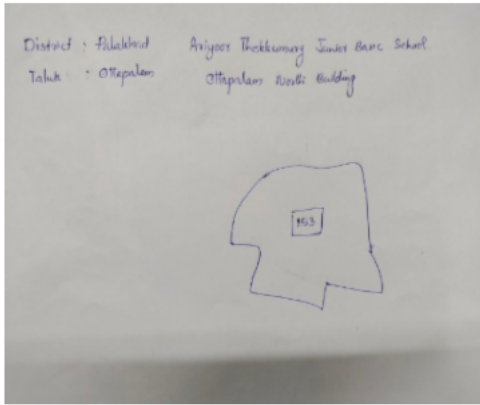 District : Palakkad Ariyoor Thekkumury Junior Basic School.
Taluk : Ottapalam Ottapalam North Building
163